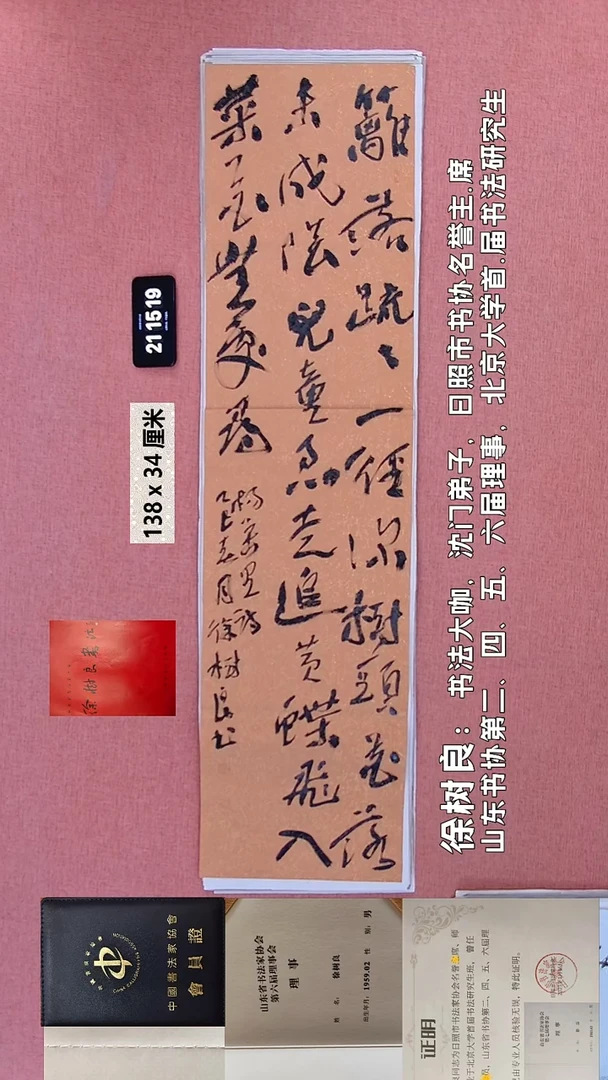 籬落疏〻一徑深樹頭花落
未成陰兒童急走追黃蝶飛入
菜花無處尋
楊萬里詩
徐樹良書
21 15 19
138 x 34 厘米
徐树良：书法大咖，沈门弟子，日照市书协名誉主.席
山东书协第二、四、五、六届理事，北京大学首.届书法研究生
中國書法家協會
會員證
山东省书法家协会
第六届理事会
理 事
姓 名： 徐树良
出生年月：1959.02 性 别：男
证明